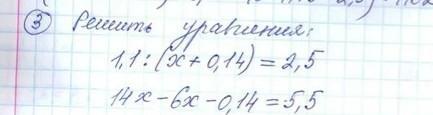 ③ Решить уравнения:
1,1 : (x + 0,14) = 2,5
14x - 6x - 0,14 = 5,5